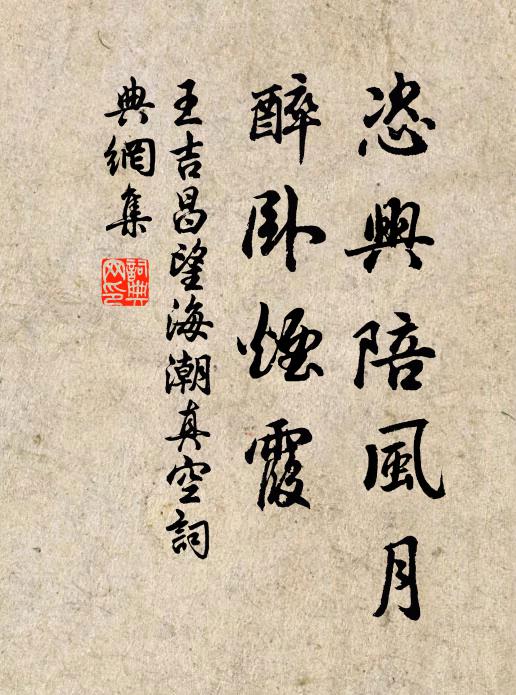 恣興陪風月
醉卧煙霞
王吉昌望海潮真空詞
典網集
詞典
网印